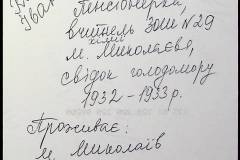 Іван
Пенсіонерка,
вчитель ЗОШ №29
хімії
м. Миколаєва,
свідок голодомору
1932 – 1933 р.
Проживає:
м. Миколаїв